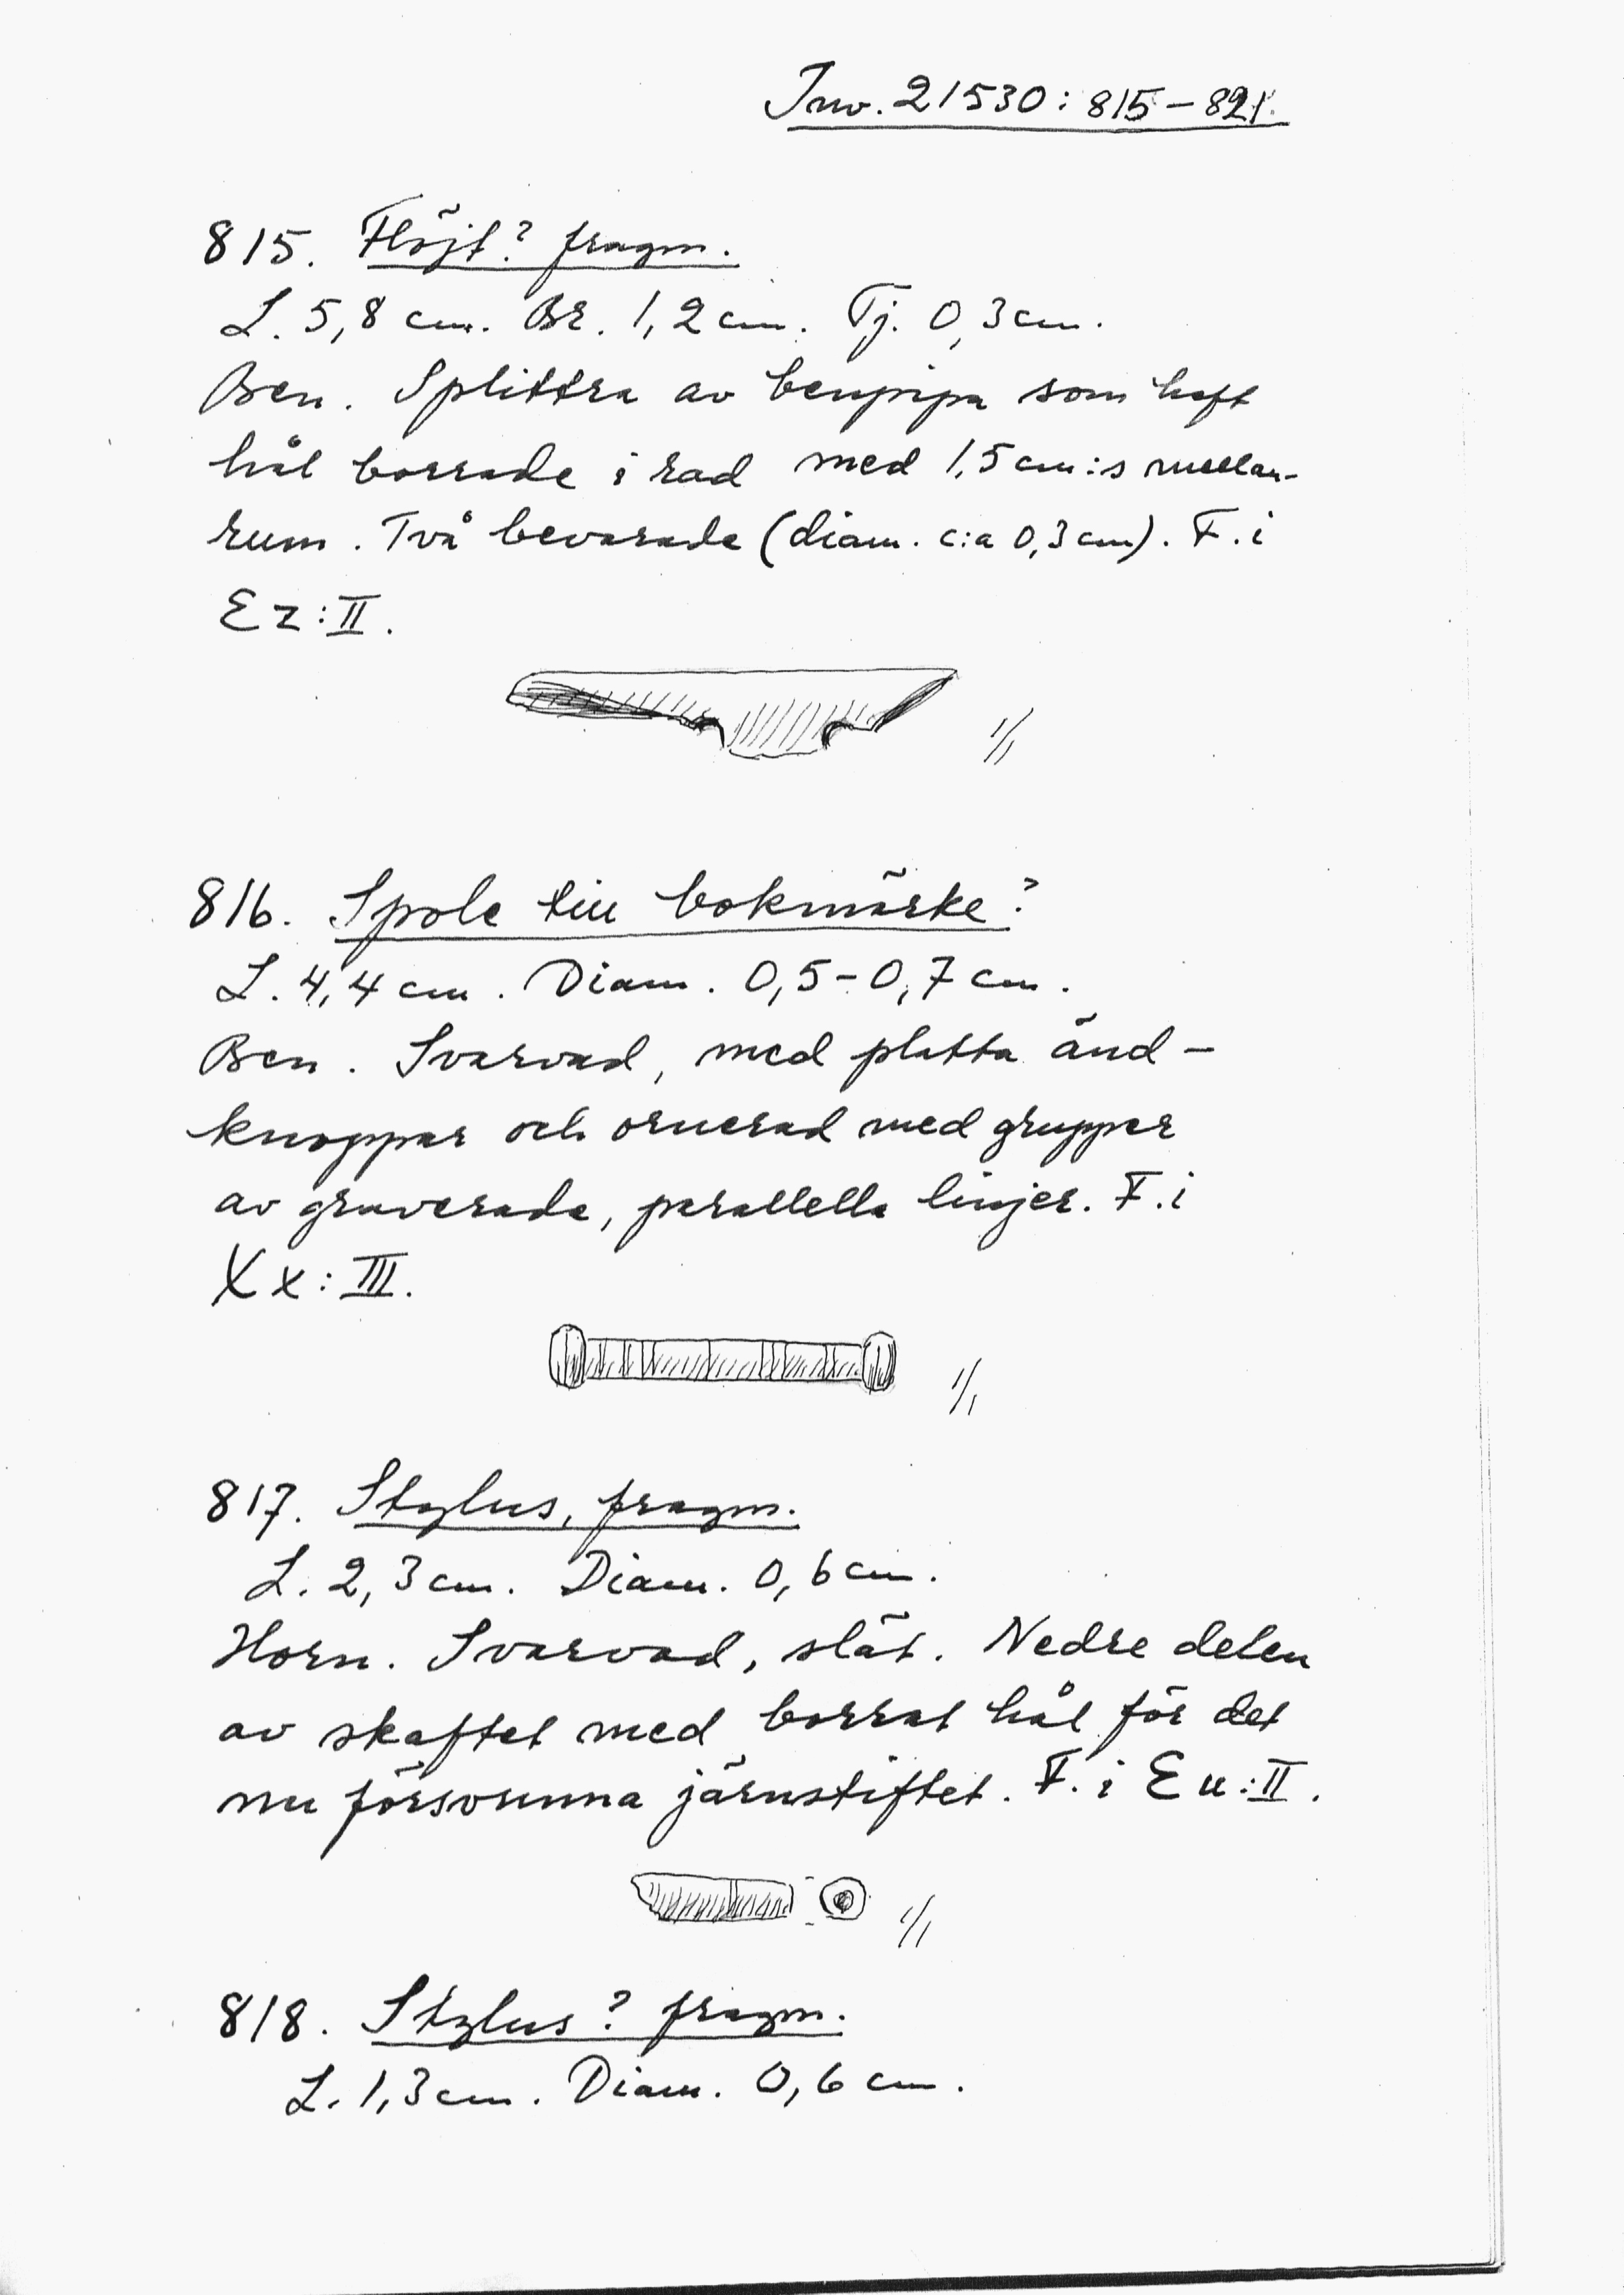 Inv. 21530: 815–821.
815. Flöjt? fragm.
L. 5,8 cm. Br. 1,2 cm. Tj. 0,3 cm.
Ben. Splittra av benpipa som haft
hål borrade i rad med 1,5 cm:s mellan-
rum. Två bevarade (diam. c:a 0,3 cm). F. i
Ez:II.
1/1
816. Spole till bokmärke?
L. 4,4 cm. Diam. 0,5–0,7 cm.
Ben. Svarvad, med platta änd-
knoppar och ornerad med grupper
av graverade, parallella linjer. F. i
Xx: III.
1/1
817. Stylus, fragm.
L. 2,3 cm. Diam. 0,6 cm.
Horn. Svarvad, slät. Nedre delen
av skaftet med borrat hål för det
nu försvunna järnstiftet. F. i Eu:II.
1/1
818. Stylus? fragm.
L. 1,3 cm. Diam. 0,6 cm.